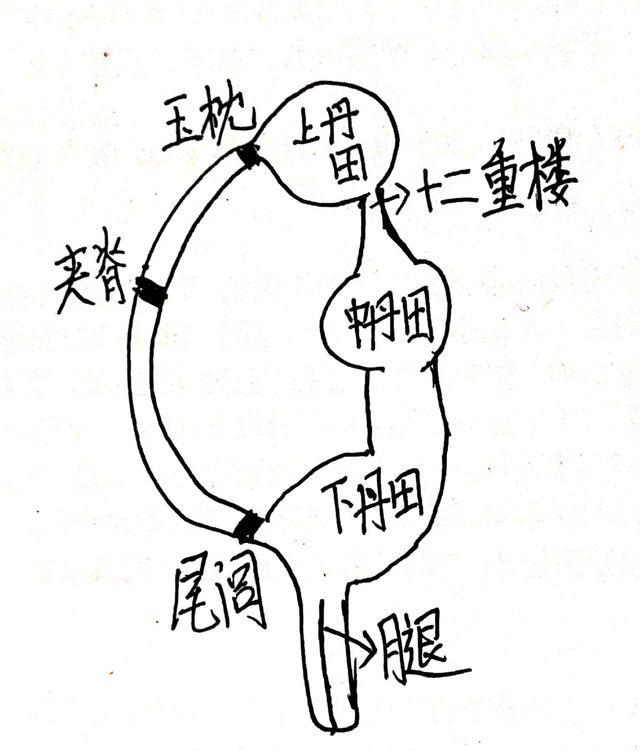 玉枕
上丹
田
十二重楼
夹脊
中丹田
下丹田
尾闾
腿